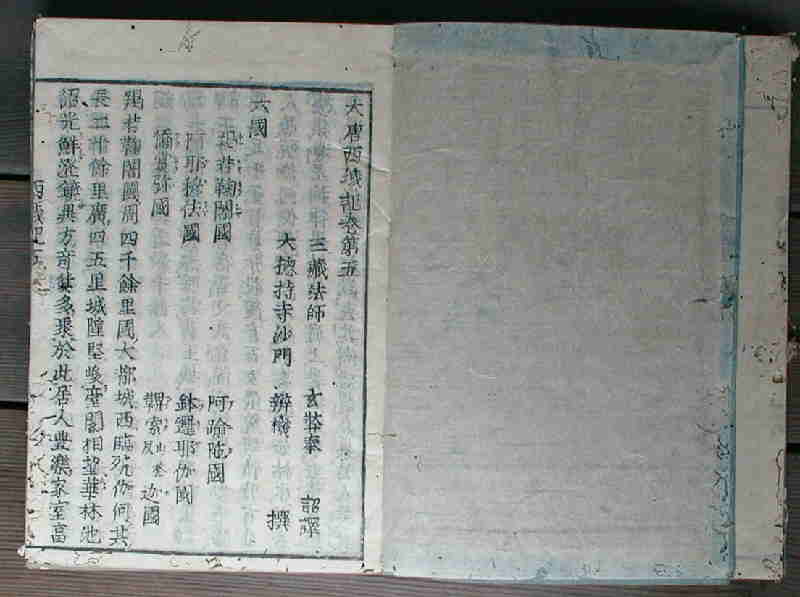 大唐西域記卷第五
三藏法師 玄奘奉 詔譯
大揔持寺沙門 辯機 撰
六國
羯若鞠闍國 阿踰陁國
阿耶穆佉國 鉢邏耶伽國
憍賞弥國 鞞索山格反迦國
羯若鞠闍國周四千餘里國大都城西臨殑伽河其
長二十餘里廣四五里城隍堅峻臺閣相望華林池
沼光鮮澄鏡異方奇貨多聚於此居人豐樂家室富
西域記五